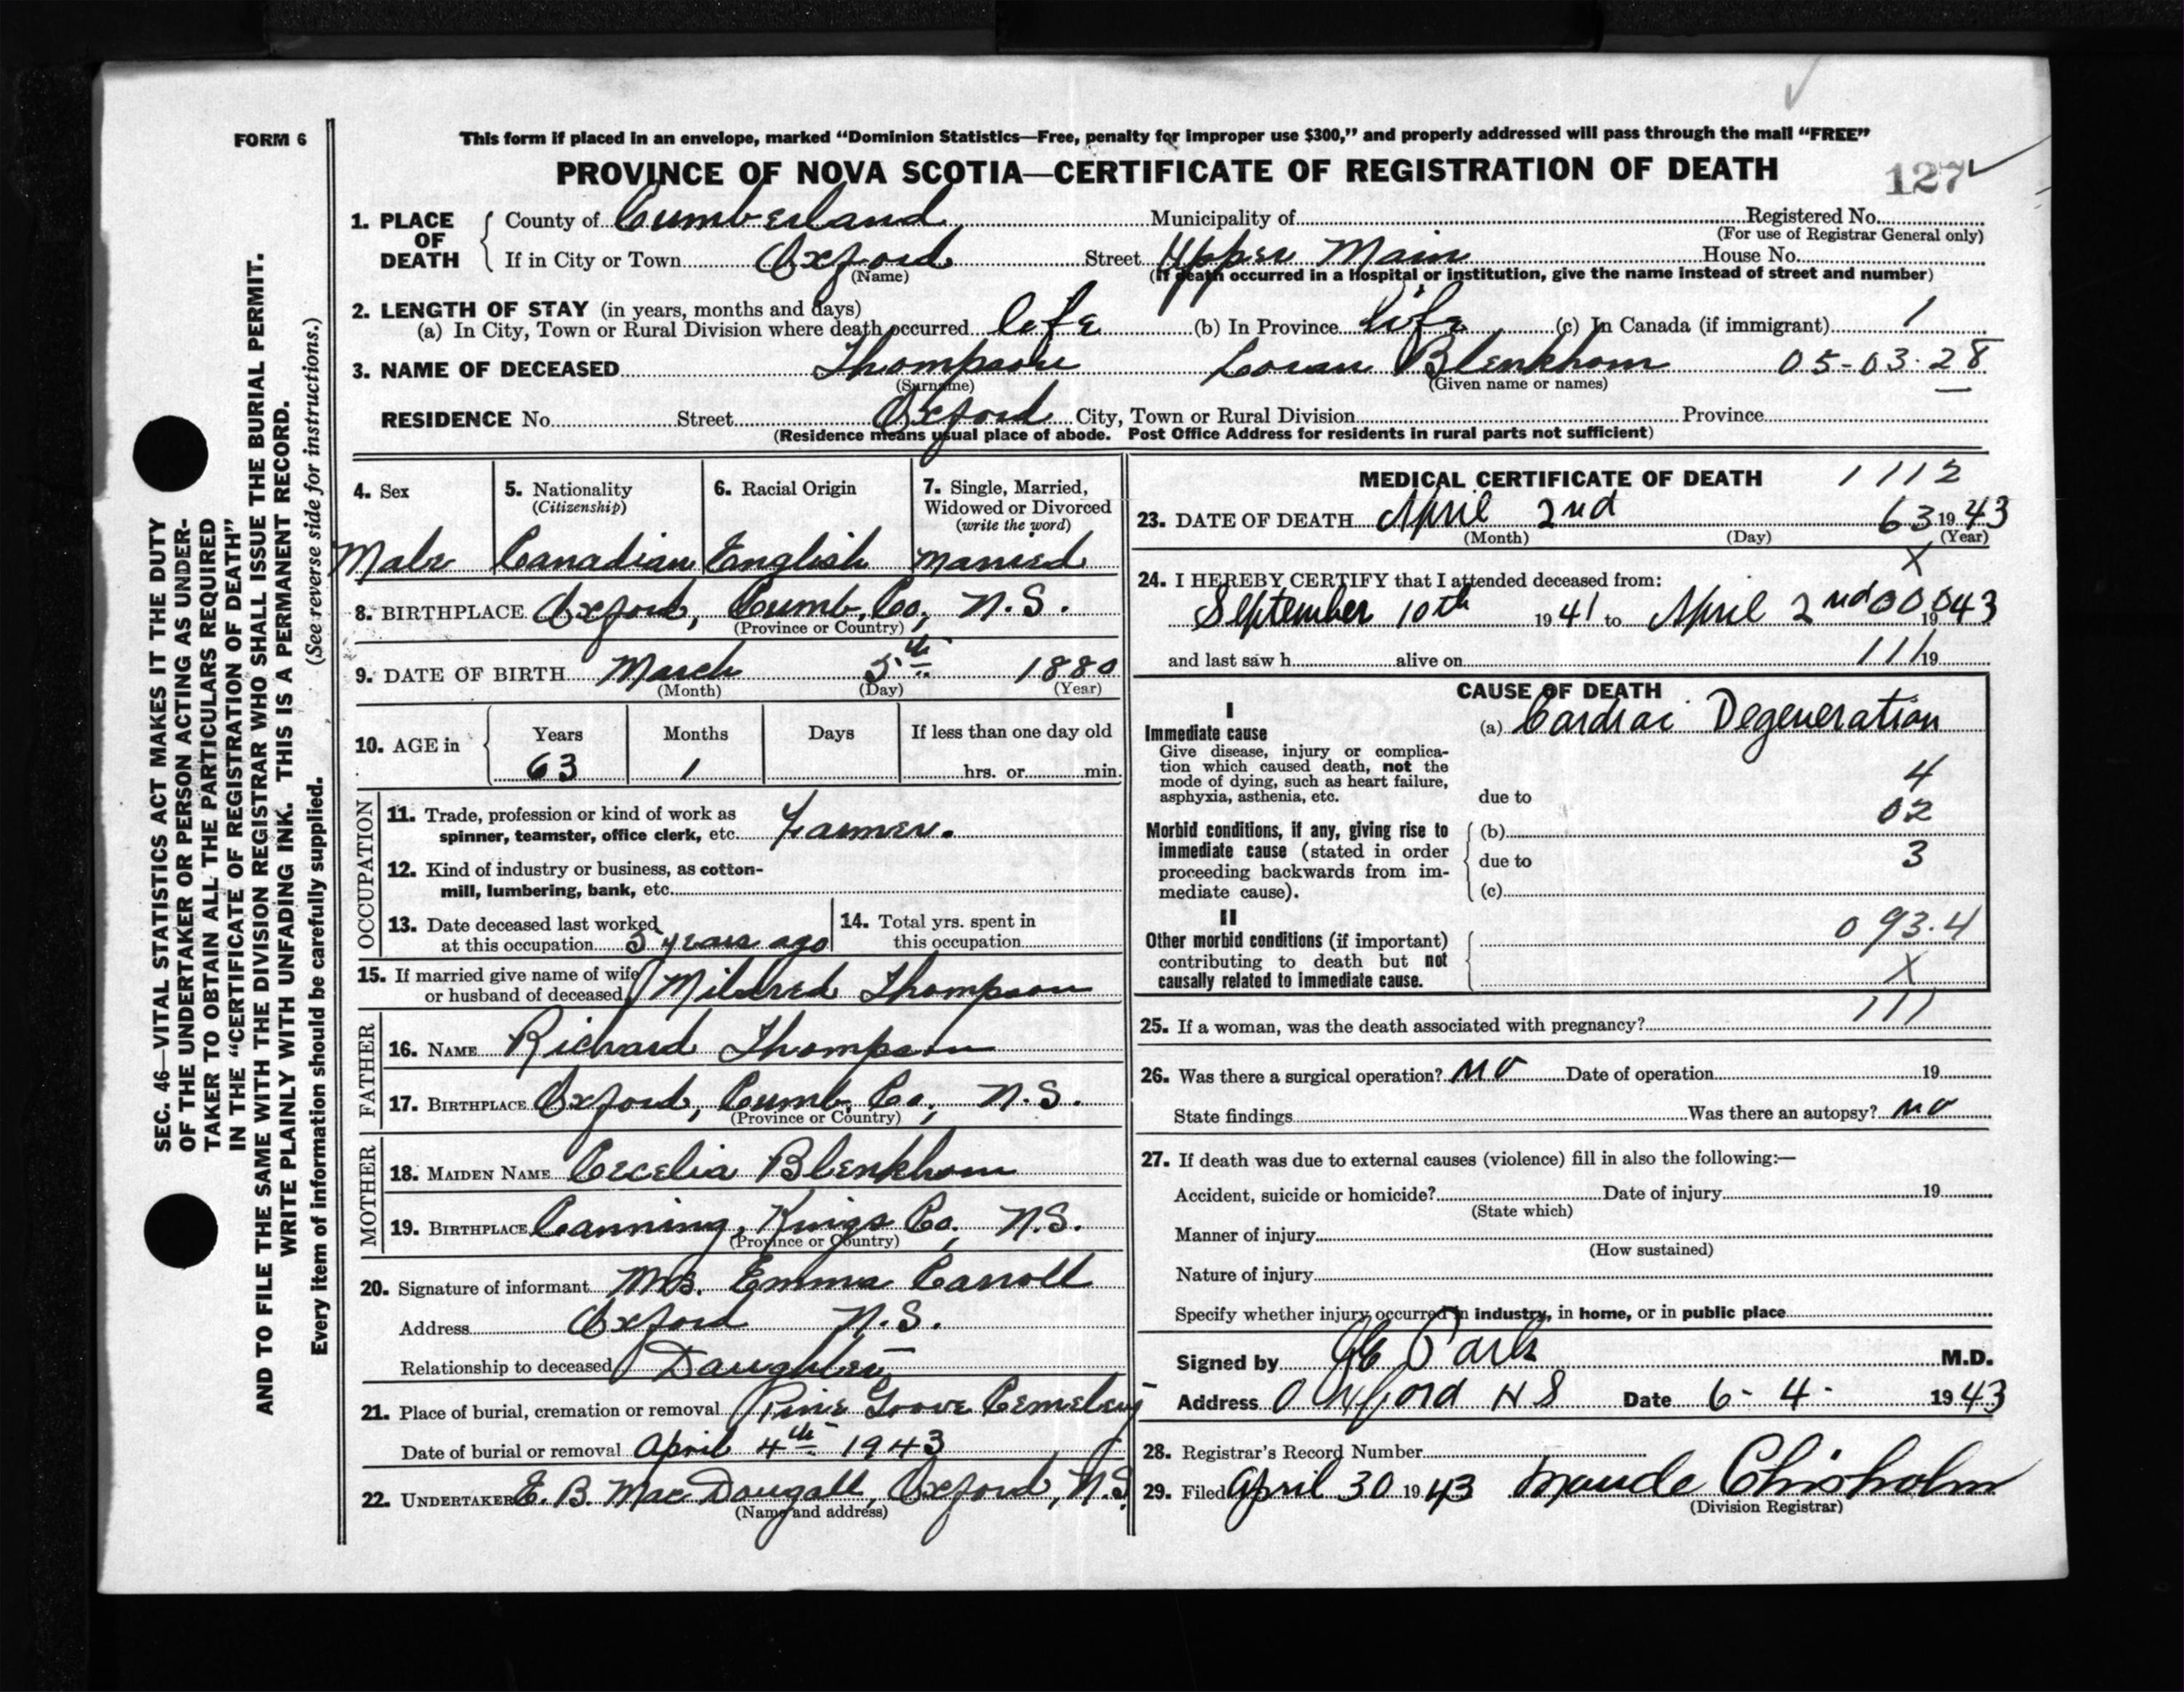 FORM 6
This form if placed in an envelope, marked "Dominion Statistics—Free, penalty for improper use $300," and properly addressed will pass through the mail "FREE"
PROVINCE OF NOVA SCOTIA—CERTIFICATE OF REGISTRATION OF DEATH
127
1. PLACE OF DEATH County of Cumberland Municipality of Registered No.
(For use of Registrar General only)
If in City or Town Oxford Street Upper Main House No.
(Name) (If death occurred in a Hospital or institution, give the name instead of street and number)
2. LENGTH OF STAY (in years, months and days)
(a) In City, Town or Rural Division where death occurred life (b) In Province life (c) In Canada (if immigrant) 1
3. NAME OF DECEASED Thompson Loran Blenkhorn 05-03-28
(Surname) (Given name or names)
RESIDENCE No. Street Oxford City, Town or Rural Division Province
(Residence means usual place of abode. Post Office Address for residents in rural parts not sufficient)
4. Sex 5. Nationality (Citizenship) 6. Racial Origin 7. Single, Married, Widowed or Divorced (write the word)
Male Canadian English Married
8. BIRTHPLACE Oxford, Cumb. Co., N.S.
(Province or Country)
9. DATE OF BIRTH March 5th 1880
(Month) (Day) (Year)
10. AGE in Years Months Days If less than one day old
63 1 hrs. or min.
OCCUPATION
11. Trade, profession or kind of work as
spinner, teamster, office clerk, etc. Farmer.
12. Kind of industry or business, as cotton-
mill, lumbering, bank, etc.
13. Date deceased last worked
at this occupation 5 years ago
14. Total yrs. spent in
this occupation
15. If married give name of wife
or husband of deceased Mildred Thompson
FATHER
16. NAME Richard Thompson
17. BIRTHPLACE Oxford, Cumb. Co., N.S.
(Province or Country)
MOTHER
18. MAIDEN NAME Cecelia Blenkhorn
19. BIRTHPLACE Canning, Kings Co., N.S.
(Province or Country)
20. Signature of informant Mrs. Emma Carroll
Address Oxford N.S.
Relationship to deceased Daughter
21. Place of burial, cremation or removal Pine Grove Cemetery
Date of burial or removal April 4th 1943
22. UNDERTAKER E. B. MacDougall, Oxford, N.S.
(Name and address)
MEDICAL CERTIFICATE OF DEATH 1112
23. DATE OF DEATH April 2nd 63 1943
(Month) (Day) (Year)
X
24. I HEREBY CERTIFY that I attended deceased from:
September 10th 1941 to April 2nd 000 1943
and last saw h alive on 111 19
CAUSE OF DEATH
I
Immediate cause (a) Cardiac Degeneration
Give disease, injury or complica-
tion which caused death, not the
mode of dying, such as heart failure,
asphyxia, asthenia, etc.
due to
4
02
3
Morbid conditions, if any, giving rise to
immediate cause (stated in order
proceeding backwards from im-
mediate cause).
(b)
due to
(c)
II
Other morbid conditions (if important)
contributing to death but not
causally related to immediate cause.
093.4
X
111
25. If a woman, was the death associated with pregnancy?
26. Was there a surgical operation? no Date of operation 19
State findings Was there an autopsy? no
27. If death was due to external causes (violence) fill in also the following:—
Accident, suicide or homicide? Date of injury 19
(State which)
Manner of injury
(How sustained)
Nature of injury
Specify whether injury occurred in industry, in home, or in public place
Signed by M.D.
Address Oxford N S Date 6-4- 1943
28. Registrar's Record Number
29. Filed April 30 1943 Maude Chisholm
(Division Registrar)
SEC. 46—VITAL STATISTICS ACT MAKES IT THE DUTY
OF THE UNDERTAKER OR PERSON ACTING AS UNDER-
TAKER TO OBTAIN ALL THE PARTICULARS REQUIRED
IN THE "CERTIFICATE OF REGISTRATION OF DEATH"
AND TO FILE THE SAME WITH THE DIVISION REGISTRAR WHO SHALL ISSUE THE BURIAL PERMIT.
WRITE PLAINLY WITH UNFADING INK. THIS IS A PERMANENT RECORD.
Every item of information should be carefully supplied. (See reverse side for instructions.)